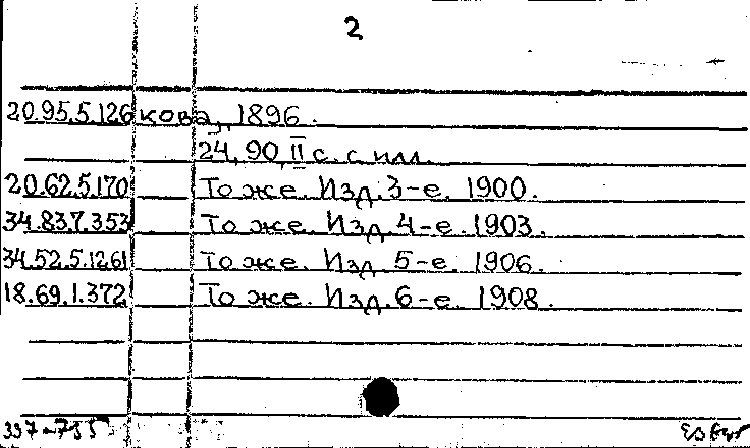 2
20.95.5.126 кова, 1896.
24, 90, II с. с илл.
20.62.5.170 То же. Изд. 3-е. 1900.
34.83.7.353 То же. Изд. 4-е. 1903.
34.52.5.1261 То же. Изд. 5-е. 1906.
18.69.1.372 То же. Изд. 6-е. 1908.